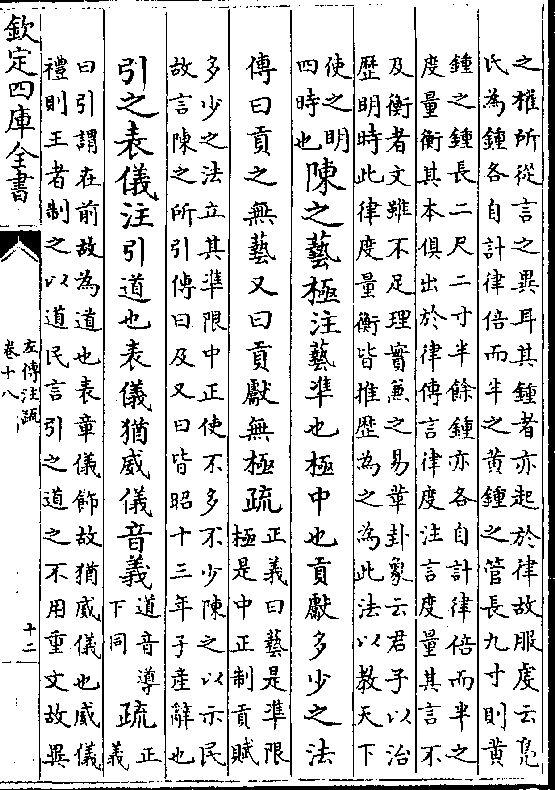 之權所從言之異耳其鍾者亦起於律故服虔云鳧
氏為鍾各自計律倍而半之黃鍾之管長九寸則黃
鍾之鍾長二尺二寸半餘鍾亦各自計律倍而半之
度量衡其本俱出於律傳言律度注言度量其言不
及衡者文雖不足理實兼之易革卦象云君子以治
歷明時此律度量衡皆推歷為之為此法以教天下
使之明
四時也
陳之藝極注藝凖也極中也貢獻多少之法
傳曰貢之無藝又曰貢獻無極疏
正義曰藝是凖限
極是中正制貢賦
多少之法立其凖限中正使不多不少陳之以示民
故言陳之所引傳曰及又曰皆昭十三年子產辭也
引之表儀注引道也表儀猶威儀音義
道音導
下同
疏
正
義
曰引謂在前故為道也表章儀飾故猶威儀也威儀
禮則王者制之以道民言引之道之不用重文故異
欽定四庫全書
左傳注疏
卷十八
十二